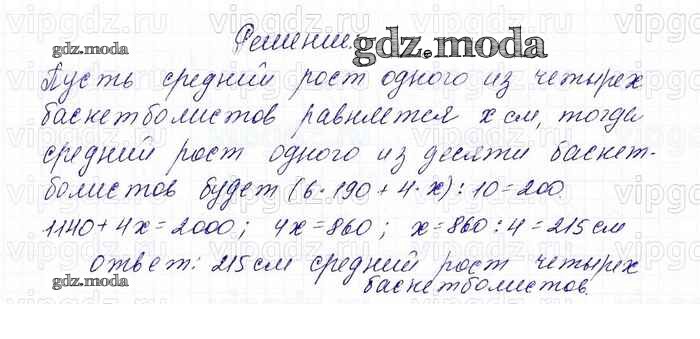 Решение.
gdz.moda
gdz.moda
Пусть средний рост одного из четырех
баскетболистов равняется x см, тогда
средний рост одного из десяти баскет-
болистов будет (6·190 + 4·x) : 10 = 200
1140 + 4x = 2000 ; 4x = 860 ; x = 860 : 4 = 215 см
Ответ: 215 см средний рост четырех
gdz.moda
баскетболистов.